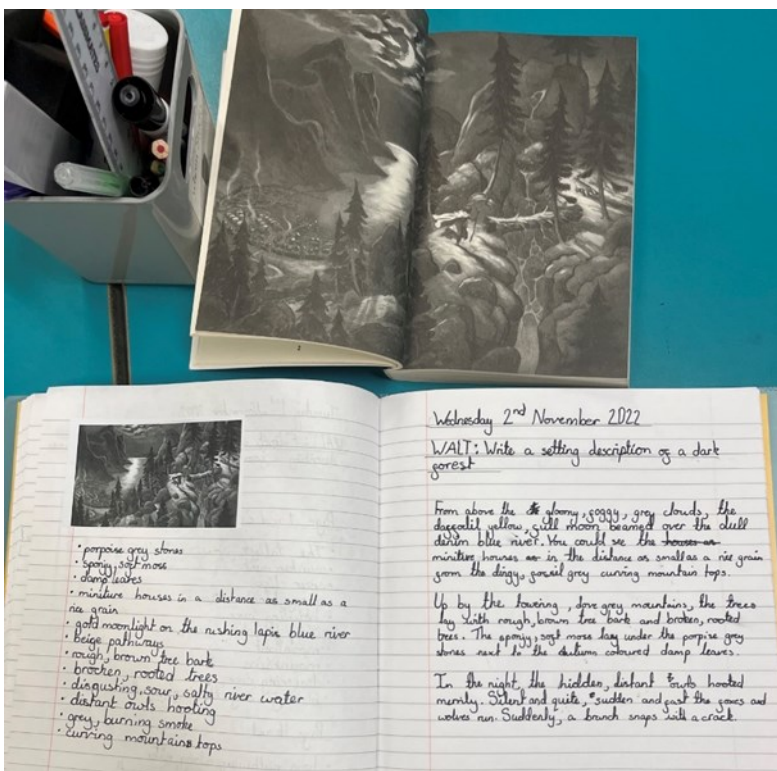 • porpoise grey stones
• spongy, soft moss
• damp leaves
• miniture houses in a distance as small as a
rice grain
• gold moonlight on the rushing lapis blue river
• beige pathways
• rough, brown tree bark
• brocken, rooted trees
• disgusting, sour, salty river water
• distant owls hooting
• grey, burning smoke
• curving mountains tops
Wednesday 2nd November 2022
WALT: Write a setting description of a dark
forest
From above the gloomy, foggy, grey clouds, the
daffodil yellow, full moon beamed over the dull
denim blue river. You could see the houses as
miniture houses as in the distance as small as a rice grain
from the dingy, fossil grey curving mountain tops.
Up by the towering, dove grey mountains, the trees
lay with rough, brown tree bark and broken, rooted
trees. The spongy, soft moss lay under the porpise grey
stones next to the autumn coloured damp leaves.
In the night, the hidden, distant owls hooted
merrily. Silent and quite, sudden and fast the foxes and
wolves run. Suddenly, a branch snaps with a crack.